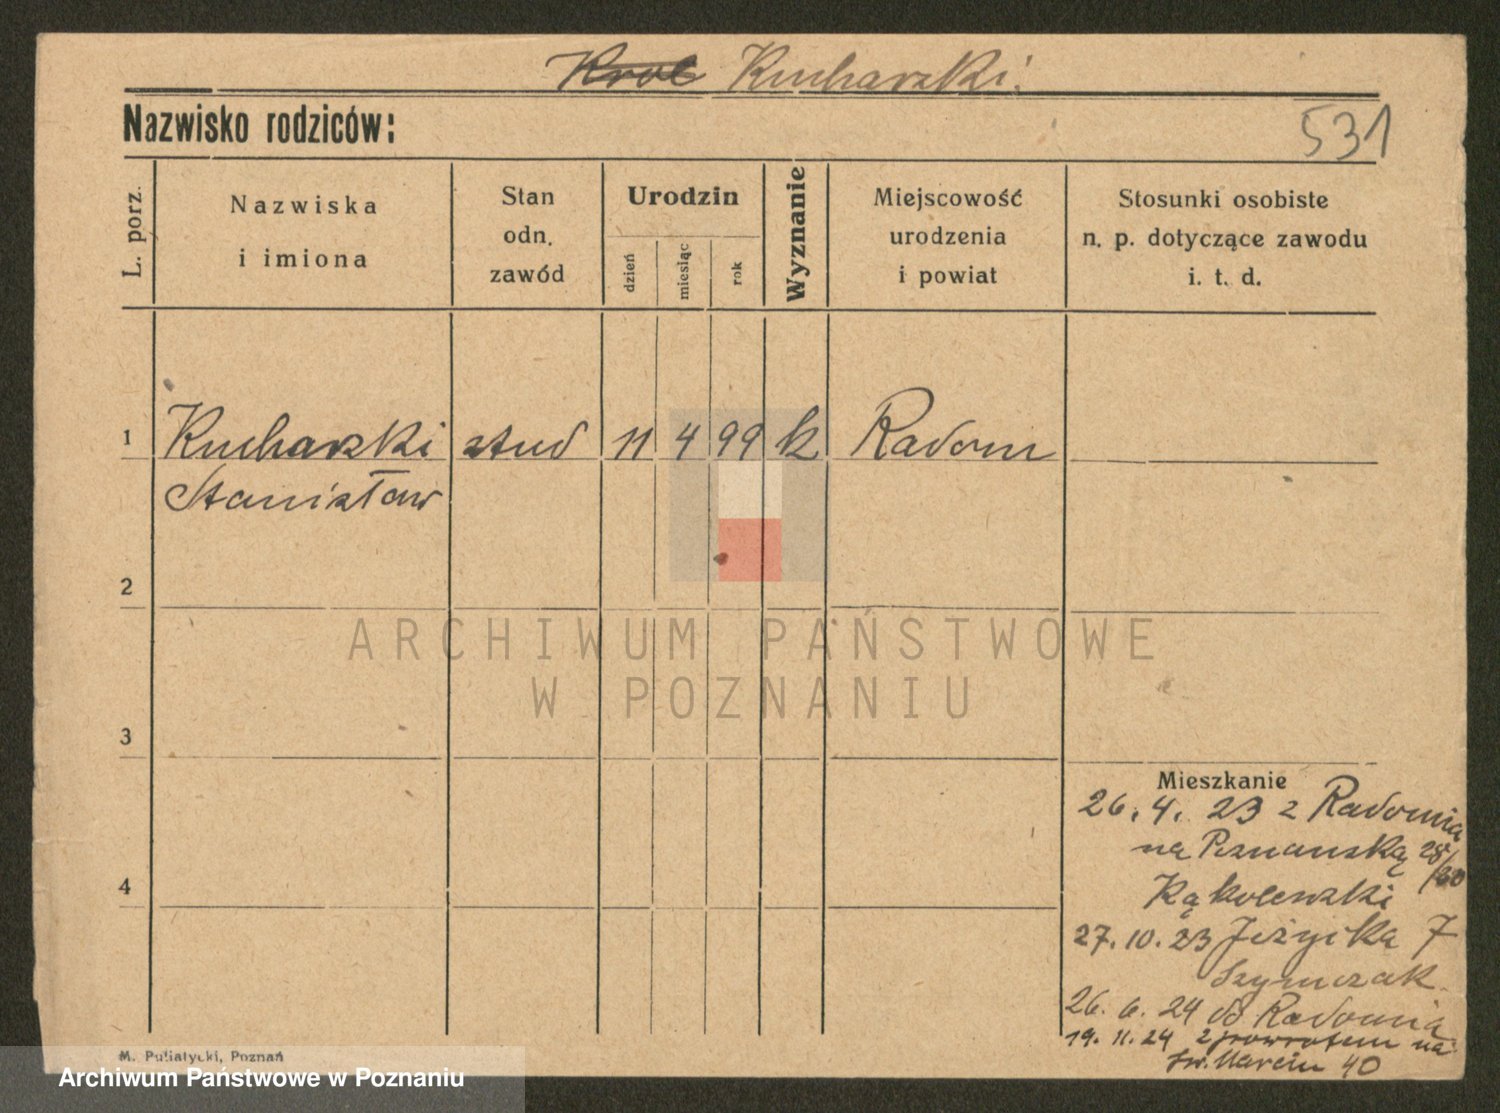 Krol Kucharski.
Nazwisko rodziców:
531
L. porz.
Nazwiska
i imiona
Stan
odn.
zawód
Urodzin
dzień
miesiąc
rok
Wyznanie
Miejscowość
urodzenia
i powiat
Stosunki osobiste
n. p. dotyczące zawodu
i. t. d.
1 Kucharski stud 11 4 99 k Radom
Stanisław
2
ARCHIWUM PAŃSTWOWE
W POZNANIU
3
Mieszkanie
26. 4. 23 z Radomia
na Poznańską 28/30
4
Kąkolewski
27. 10. 23 Jeżycka 7
Szymczak.
26. 6. 24 do Radomia
19. 11. 24 z powrotem na
Św. Marcin 40
M. Puliatycki, Poznań
Archiwum Państwowe w Poznaniu